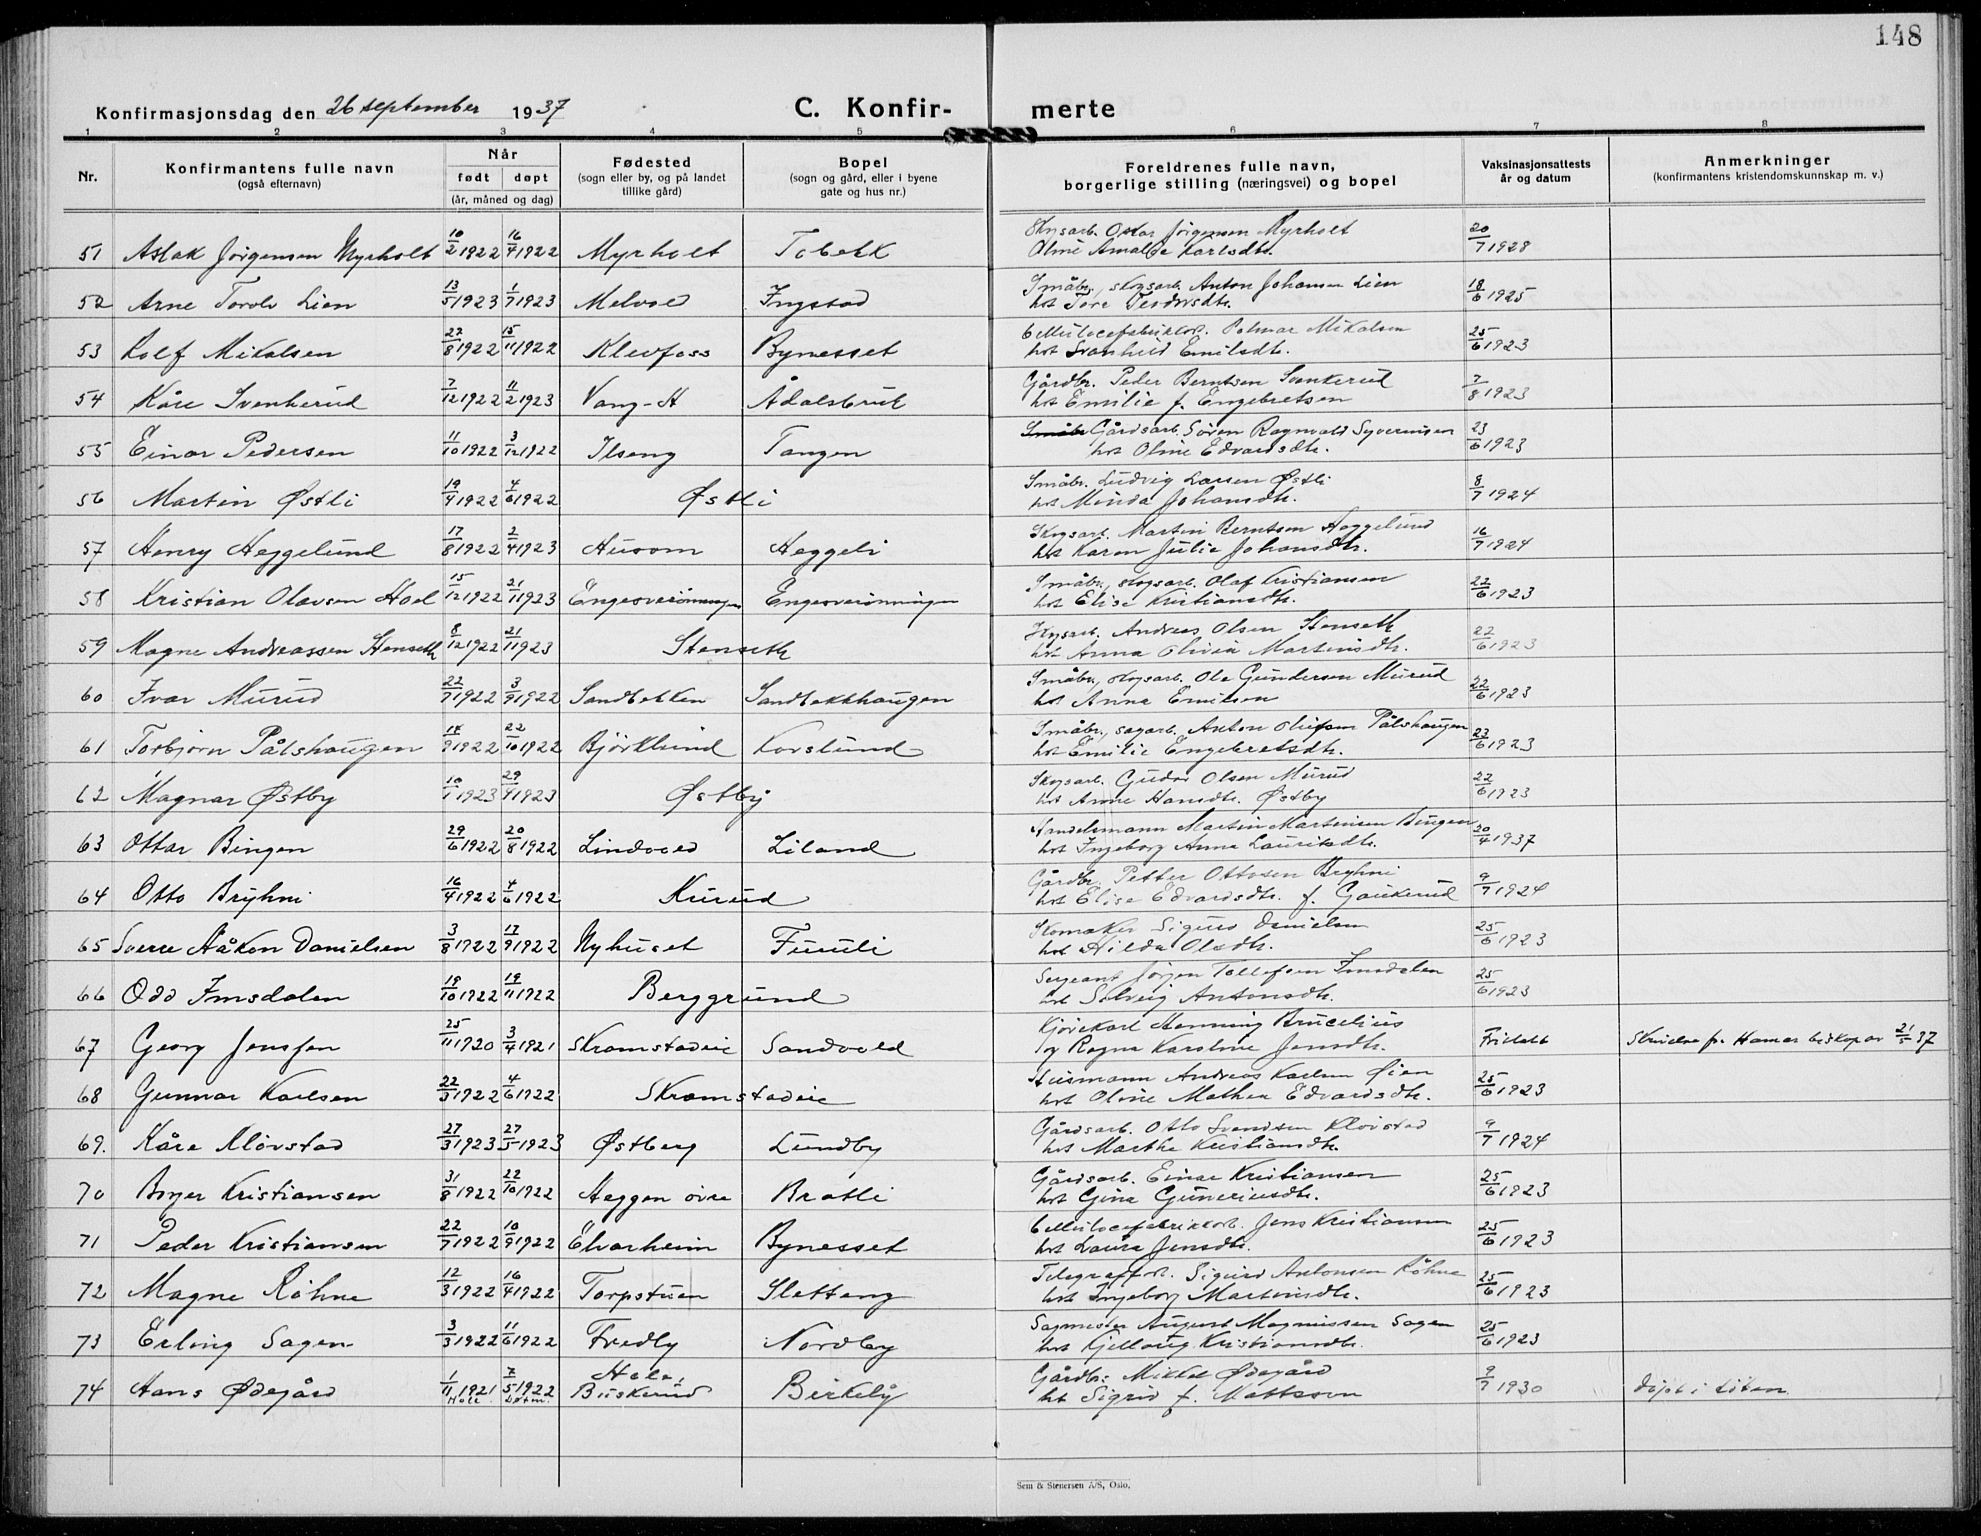 148
Konfirmasjonsdag den 26 september 1937 C. Konfir- merte
1 2 3 4 5 6 7 8
Nr. Konfirmantens fulle navn (også efternavn) Når født døpt (år, måned og dag) Fødested (sogn eller by, og på landet tillike gård) Bopel (sogn og gård, eller i byene gate og hus nr.) Foreldrenes fulle navn, borgerlige stilling (næringsvei) og bopel Vaksinasjonsattests år og datum Anmerkninger (konfirmantens kristendomskunnskap m. v.)
51 Aslak Jørgensen Myrholt 10/2 1922 16/4 1922 Myrholt Tobekk Skogsarb. Oskar Jørgensen Myrholt 20/7 1928
Oline Amalie Karlsdtr.
52 Arne Torolv Lien 13/5 1923 1/7 1923 Melvold Ingstad Småbr., skogsarb. Anton Johansen Lien 18/6 1925
hst Tore
53 Rolf Mikalsen 22/8 1922 15/11 1922 Klevfoss Bynesset Cellulosefabrikkarb. Mikalsen 25/6 1923
hst Svanhild Emilsdtr.
54 Kåre Svenkerud 7/12 1922 11/2 1923 Vang-H Ådalsbruk Gårdbr. Peder Berntsen Svenkerud 7/8 1923
hst Emilie f. Engebretsen
55 Einar Pedersen 11/10 1922 3/12 1922 Ilseng Tangen Småbr Gårdsarb. Søren Ragnvald Syvertsen 23/6 1923
hst Oline Edvardsdtr.
56 Martin Østli 19/4 1922 4/6 1922 Østli Småbr. Ludvig Larsen Østli 8/7 1924
hst Minda Johansdtr.
57 Henry Heggelund 17/8 1922 2/4 1923 Husom Heggeli Skogsarb. Martin Berntsen Heggelund 16/7 1924
hst Karen Julie Johansdtr.
58 Kristian Olavsen Hoel 15/12 1922 21/1 1923 Engesvevningen Engesvevningen Småbr., skogsarb. Olaf Kristiansen 22/6 1923
hst Elise Kristiansdtr.
59 Magne Andreassen Stenseth 8/12 1922 21/1 1923 Stenseth Skogsarb. Andreas Olsen Stenseth 22/6 1923
hst Anna Olivia Martinsdtr.
60 Ivar Murud 22/7 1922 3/9 1922 Sandbekken Sandbekkhaugen Småbr., skogsarb. Ole Gundersen Murud 22/6 1923
hst Anna Emilsen
61 Torbjørn Pålshaugen 14/9 1922 22/10 1922 Bjørklund Korslund Småbr., sagarb. Anton Olufsen Pålshaugen 22/6 1923
hst Emilie Engebretsdtr.
62 Magnar Østby 10/1 1923 29/4 1923 Østby Skogsarb. Gudar Olsen Murud 22/6 1923
hst Anne Hansdtr. Østby
63 Ottar Bingen 29/6 1922 20/8 1922 Lindvold Liland Handelsmann Martin Martinsen Bingen 20/4 1937
hst Ingeborg Anna Lauritsdtr.
64 Otto Bryhni 16/4 1922 4/6 1922 Kurud Gårdbr. Petter Ottosen Bryhni 9/7 1924
hst Elise Edvardsdtr. f. Gaukerud
65 Sverre Håkon Danielsen 3/8 1922 17/9 1922 Nyhuset Furuli Skomaker Sigurd Danielsen 25/6 1923
hst Hilda Olsdtr.
66 Odd Imsdalen 19/10 1922 19/11 1922 Berggrund Sergeant Jørgen Tollefsen Imsdalen 25/6 1923
hst Solveig Antonsdtr.
67 Georg Jensen 25/11 1920 3/4 1921 Skramstadeie Sandvold Kjørekarl Henning Brucelius Fritatt Skrivelse fr. Hamar biskop av 21/5 37
og Ragna Karoline Jensdtr.
68 Gunnar Karlsen 22/3 1922 4/6 1922 Skramstadeie Husmann Andreas Karlsen Øien 25/6 1923
hst Oline Mathea Edvardsdtr.
69. Kåre Kløvstad 27/3 1923 27/5 1923 Østberg Lundby Gårdsarb. Otto Svendsen Kløvstad 9/7 1924
hst Marthe Kristiansdtr.
70 Birger Kristiansen 31/8 1922 22/10 1922 Heggen øvre Bråtli Gårdsarb. Einar Kristiansen 25/6 1923
hst Gina Guneriusdtr.
71 Peder Kristiansen 22/7 1922 10/9 1922 Elvarheim Bynesset Cellulosefabrikkarb. Jens Kristiansen 25/6 1923
hst Laura Jensdtr.
72 Magne Røhne 12/3 1922 16/4 1922 Torpstuen Sletteng Telegrafarb. Sigurd Antonsen Røhne 25/6 1923
hst Ingeborg Martinsdtr.
73 Erling Sagen 3/3 1922 11/6 1922 Fredly Nordby Sagmester August Magnussen Sagen 25/6 1923
hst Kjellaug Kristiansdtr.
74 Hans Ødegård 1/11 1921 Hole 7/5 1922 Løten Hole, Buskerud Birkely Gårdbr. Mikkel Ødegård 9/7 1930 Døpt i Løten
hst Sigrid f. Mattsson
Sem & Stenersen A/S, Oslo.